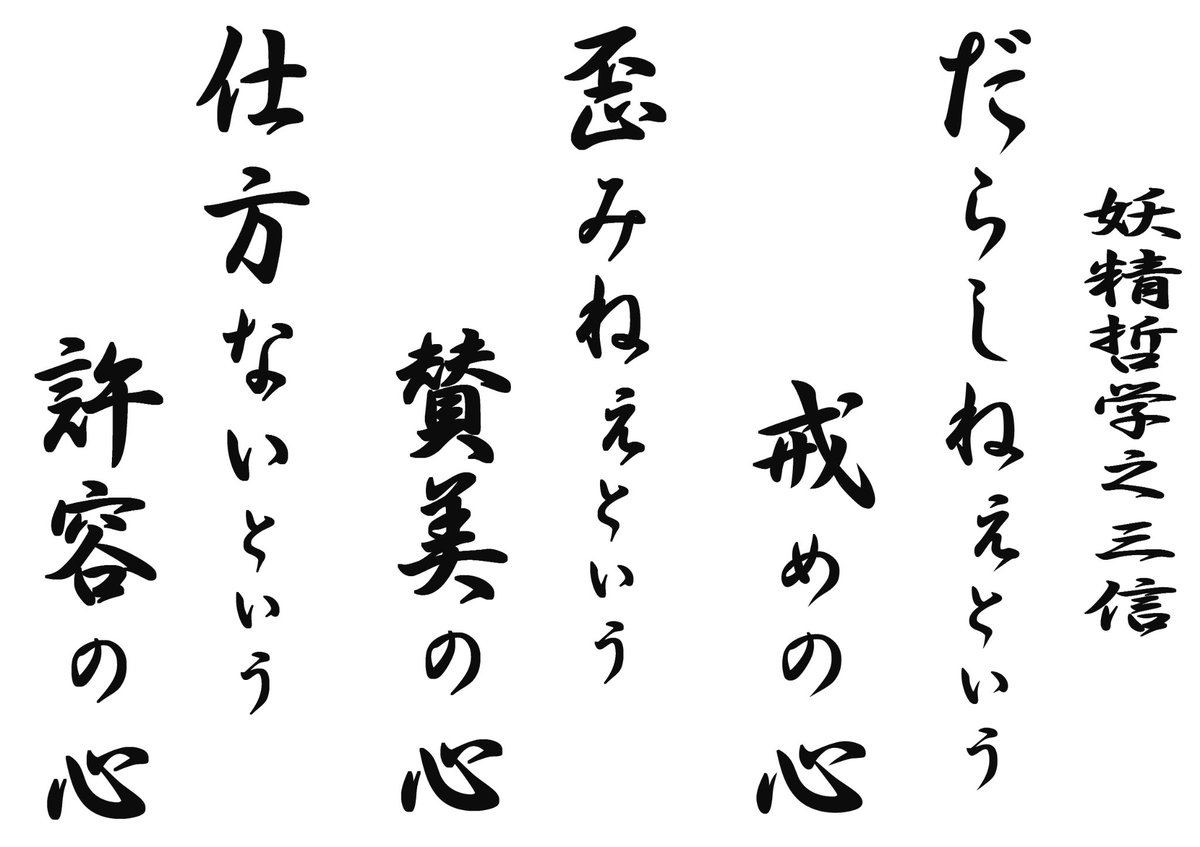 妖精哲学之三信
だらしねぇという
戒めの心
歪みねぇという
賛美の心
仕方ないという
許容の心